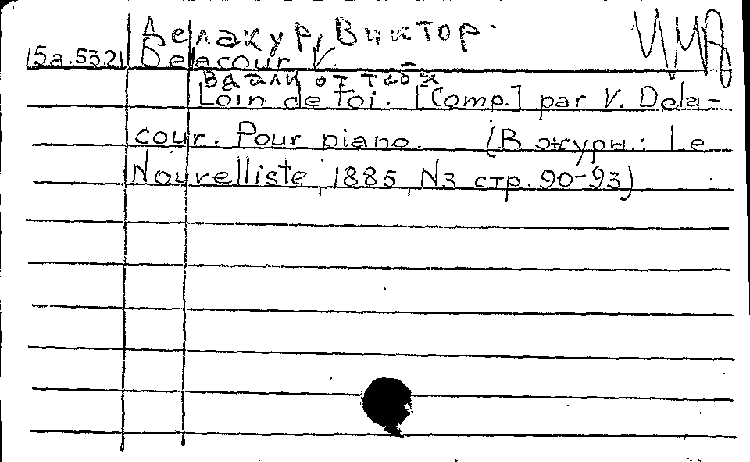 Делакур, Виктор.
15а.532 Delacour
Вдали от тебя
Loin de toi. [Comp.] par V. Dela-
cour. Pour piano. (В журн.: Le
Nouvelliste 1885 N3 стр. 90-93)